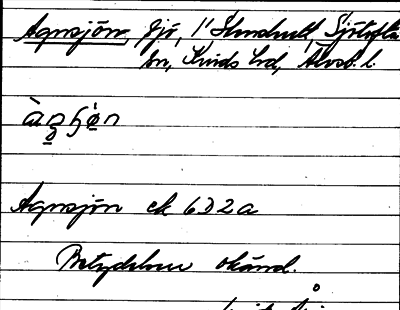 Agnsjön, sjö, i Hunshult, Sjötofta
sn, Kinds hd, Älvsb. l.
Agnsjön ek 6D2a
Betydelsen okänd.